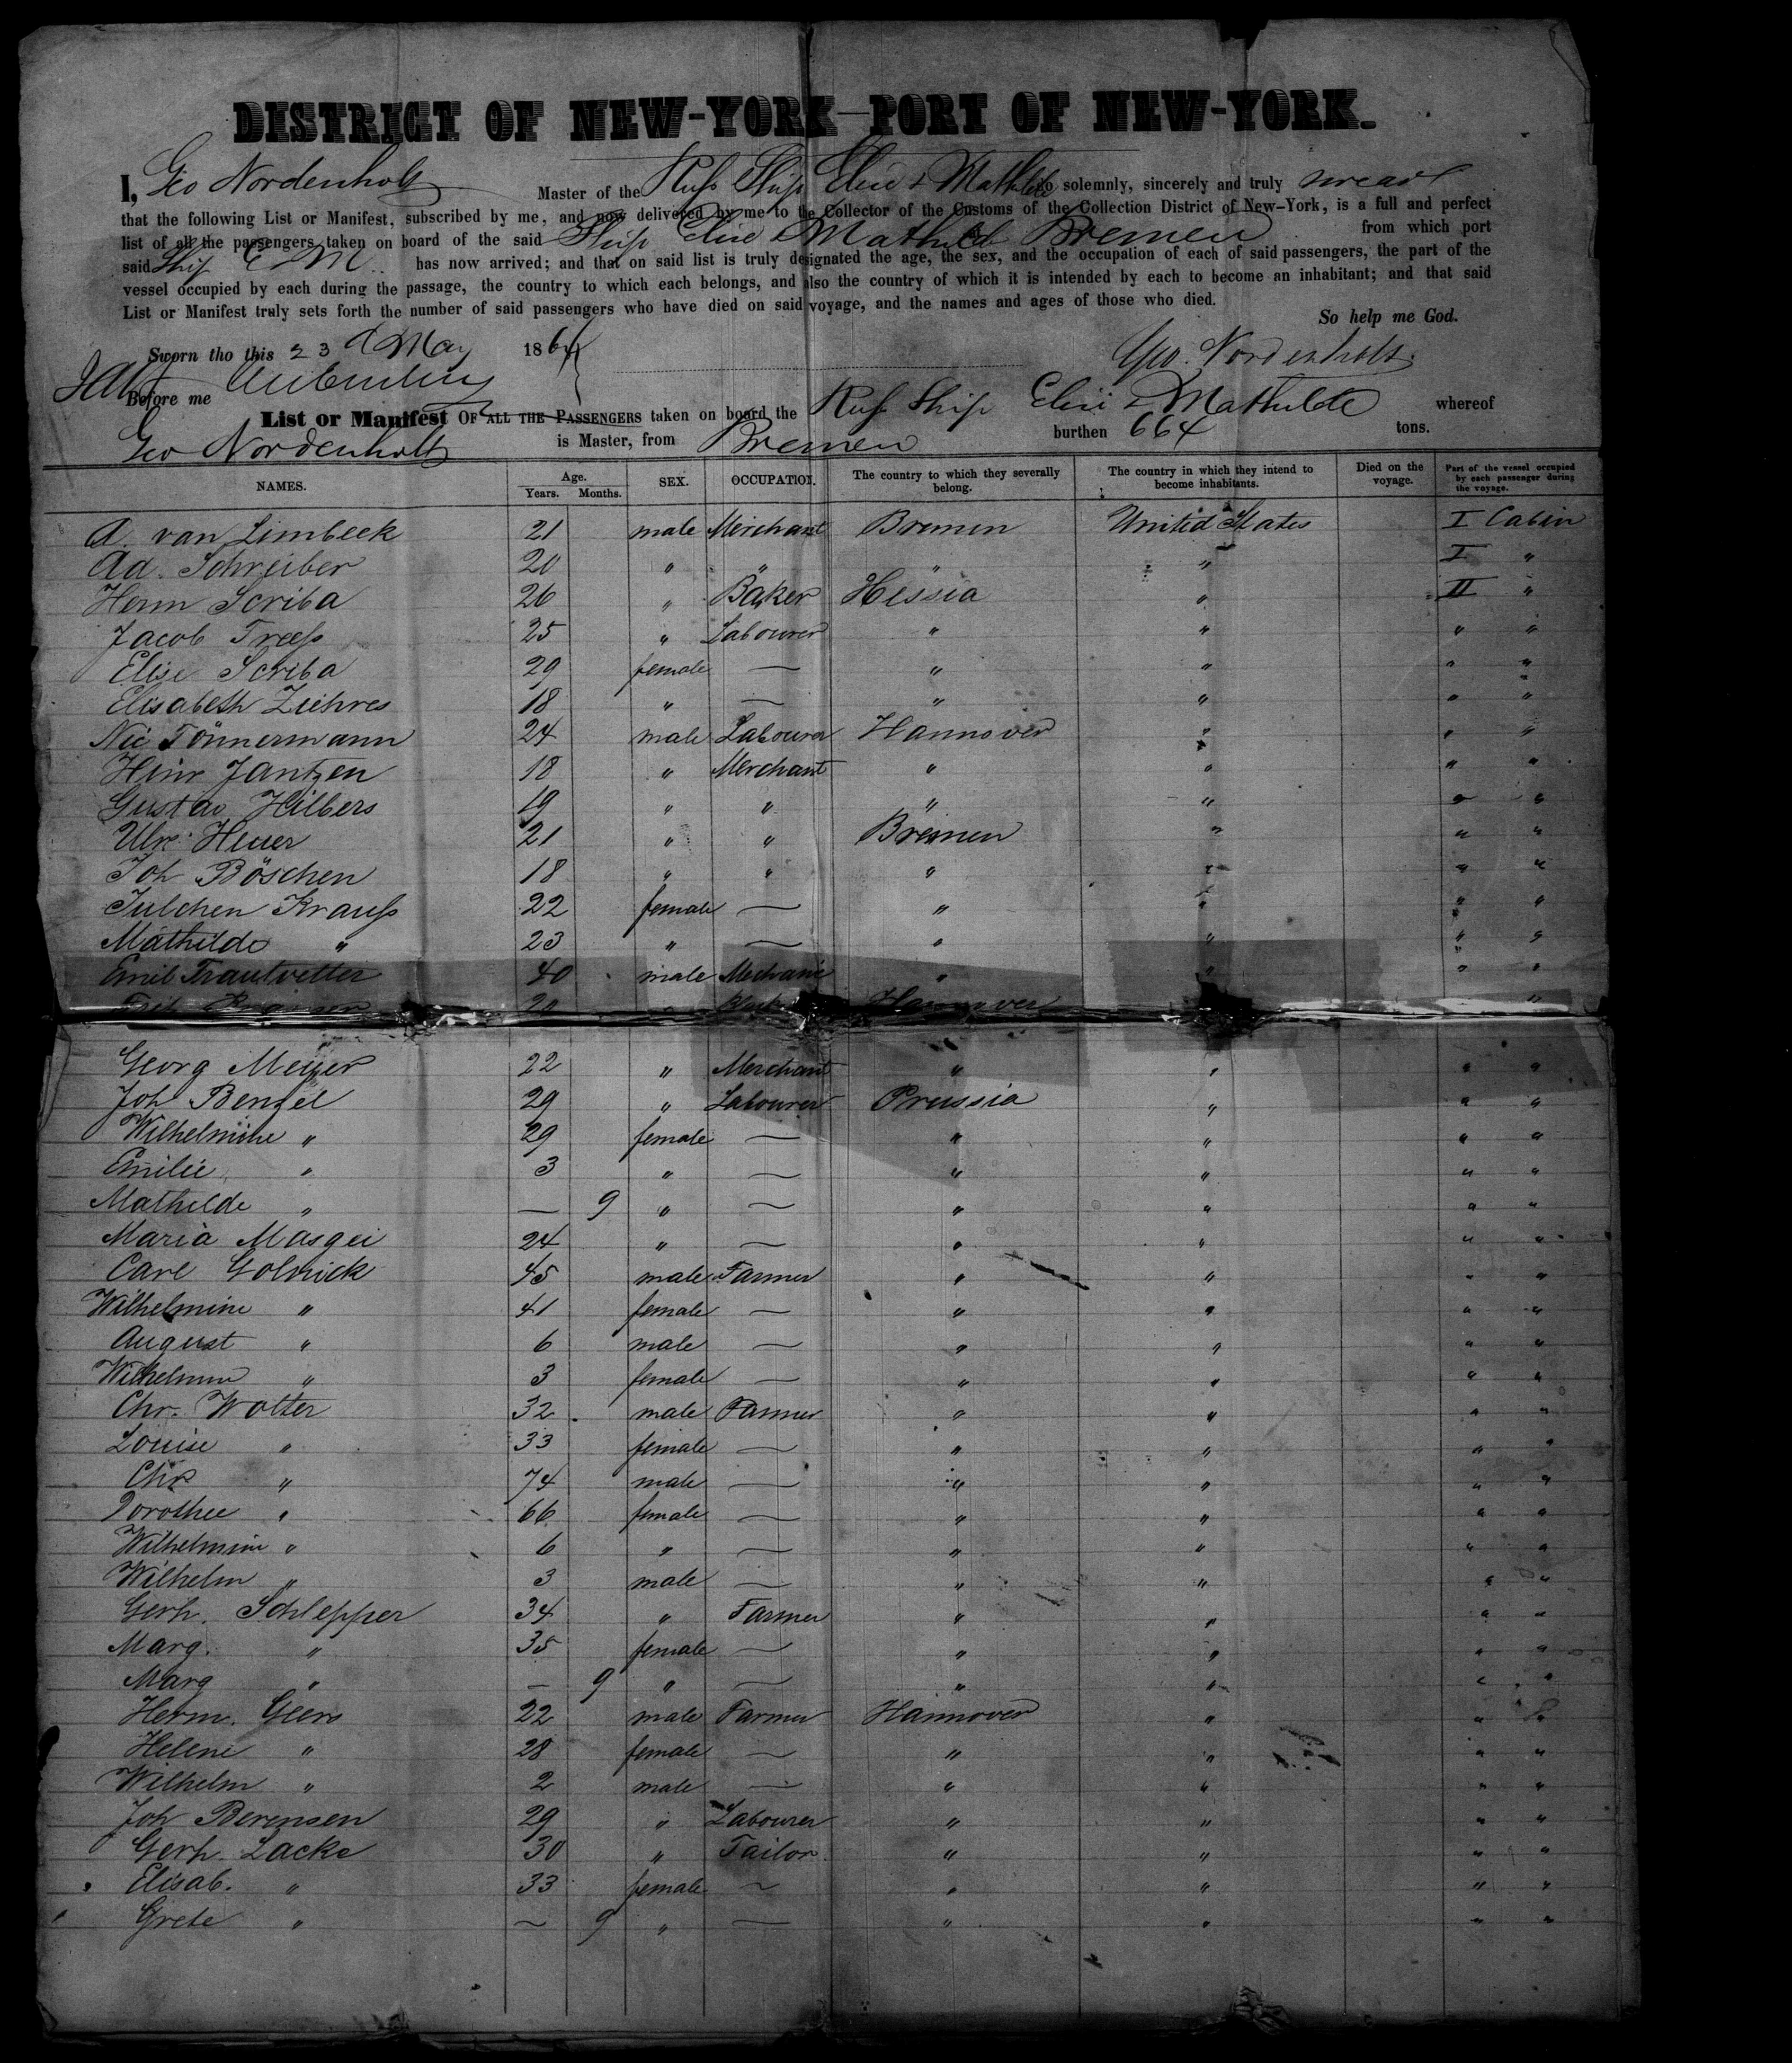 DISTRICT OF NEW-YORK—PORT OF NEW-YORK.
I, Geo Nordenholt Master of the Russ Ship Elise & Mathilde do solemnly, sincerely and truly swear
that the following List or Manifest, subscribed by me, and now delivered by me to the Collector of the Customs of the Collection District of New-York, is a full and perfect
list of all the passengers taken on board of the said Ship Elise & Mathilde Bremen from which port
said Ship E & M has now arrived; and that on said list is truly designated the age, the sex, and the occupation of each of said passengers, the part of the
vessel occupied by each during the passage, the country to which each belongs, and also the country of which it is intended by each to become an inhabitant; and that said
List or Manifest truly sets forth the number of said passengers who have died on said voyage, and the names and ages of those who died.
So help me God.
Sworn tho this 23 May 1864 Geo. Nordenholt
Before me
List or Manifest OF ALL THE PASSENGERS taken on board the Russ Ship Elise & Mathilde whereof
Geo Nordenholt is Master, from Bremen burthen 664 tons.
NAMES. Age. Years. Months. SEX. OCCUPATION. The country to which they severally belong. The country in which they intend to become inhabitants. Died on the voyage. Part of the vessel occupied by each passenger during the voyage.
A. van Limbeek 21 male Merchant Bremen United States I Cabin
Ad. Schreiber 20 " " " " I "
Herm Scriba 26 " Baker Hessia " II "
Jacob Treeß 25 " Labourer " " " "
Elise Scriba 29 female — " " " "
Elisabeth Ziehres 18 " — " " " "
Nic Tönnermann 24 male Labourer Hannover " " "
Hinr Jantzen 18 " Merchant " " " "
Gustav Hilbers 19 " " " " " "
Ulr. Heuer 21 " " Bremen " " "
Joh Böschen 18 " " " " " "
Julchen Krauß 22 female — " " " "
Mathilde " 23 " — " " " "
Emil Trautvetter 40 male Mechanic " " " "
20 " Hannover "
Georg Meyer 22 " Merchant " " " "
Joh Benzel 29 " Labourer Prussia " " "
Wilhelmine " 29 female — " " " "
Emilie " 3 " — " " " "
Mathilde " — 9 " — " " " "
Maria Masgei 24 " — " " " "
Carl Golnick 45 male Farmer " " " "
Wilhelmine " 41 female — " " " "
August " 6 male — " " " "
Wilhelmine " 3 female — " " " "
Chr. Wolter 32 male Farmer " " " "
Louise " 33 female — " " " "
Chr " 74 male — " " " "
Dorothee " 66 female — " " " "
Wilhelmine " 6 " — " " " "
Wilhelm " 3 male — " " " "
Gerh. Schlepper 34 " Farmer " " " "
Marg. " 35 female — " " " "
Marg " — 9 " — " " " "
Herm. Geers 22 male Farmer Hannover " " "
Helene " 28 female — " " " "
Wilhelm " 2 male — " " " "
Joh Berensen 29 " Labourer " " " "
Gerh. Lacke 30 " Tailor " " " "
Elisab. " 33 female — " " " "
Grete " — 9 " — " " " "